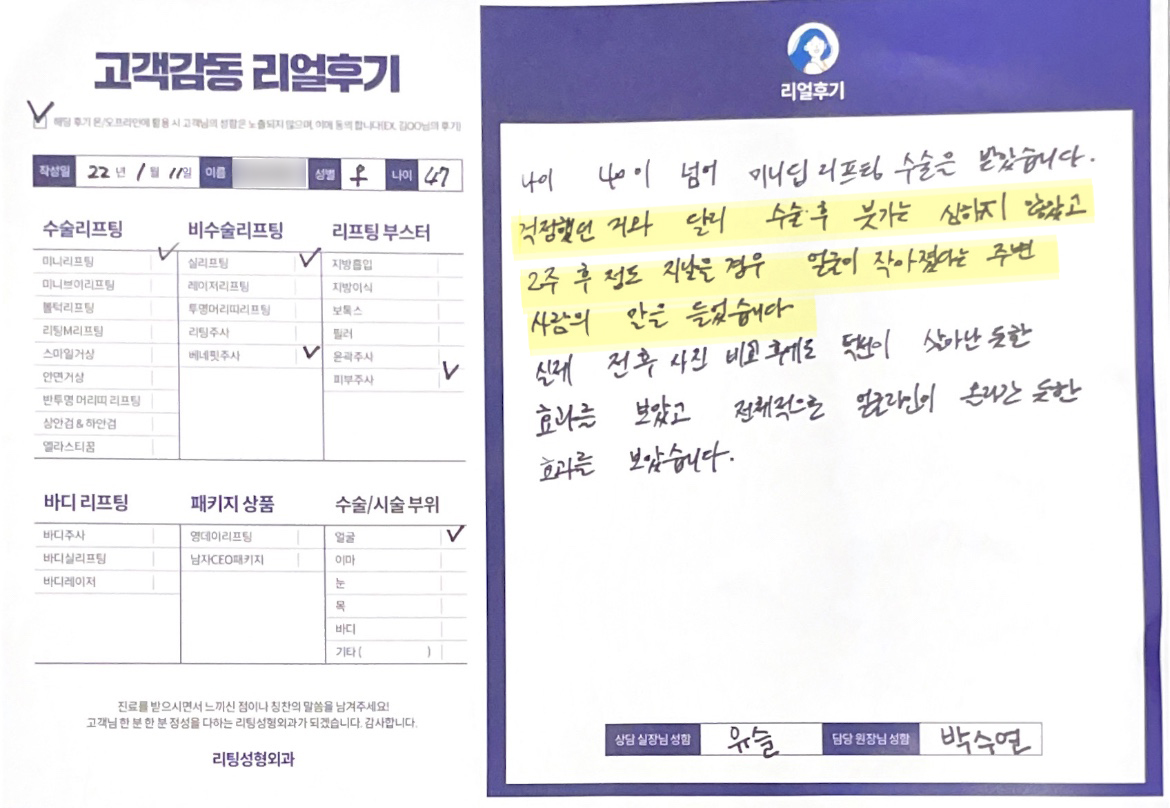 고객감동 리얼후기
해당 후기 온/오프라인에 활용 시 고객님의 성함은 노출되지 않으며, 이에 동의 합니다(EX. 김OO님의 후기)
작성일 22년 1월 11일 이름 성별 우 나이 47
수술리프팅
미니리프팅
미니브이리프팅
볼턱리프팅
리팅M리프팅
스마일거상
안면거상
반투명 머리띠 리프팅
상안검 & 하안검
엘라스티꿈
비수술리프팅
실리프팅
레이저리프팅
투명머리띠리프팅
리팅주사
베네핏주사
리프팅 부스터
지방흡입
지방이식
보톡스
필러
윤곽주사
피부주사
바디 리프팅
바디주사
바디실리프팅
바디레이저
패키지 상품
영데이리프팅
남자CEO패키지
수술/시술 부위
얼굴
이마
눈
목
바디
기타 ( )
진료를 받으시면서 느끼신 점이나 칭찬의 말씀을 남겨주세요!
고객님 한 분 한 분 정성을 다하는 리팅성형외과가 되겠습니다. 감사합니다.
리팅성형외과
리얼후기
나이 40이 넘어 미니딥리프팅 수술은 받았습니다.
걱정했던 거와 달리 수술 후 붓기는 심하지 않았고
2주 후 정도 지났을 경우 얼굴이 작아졌다는 주변
사람의 말을 들었습니다
실제 전후 사진 비교 후에도 턱선이 살아난 듯한
효과를 보았고 전체적으로 얼굴라인이 올라간 듯한
효과를 보았습니다.
상담 실장님 성함 유슬 담당 원장님 성함 박수연